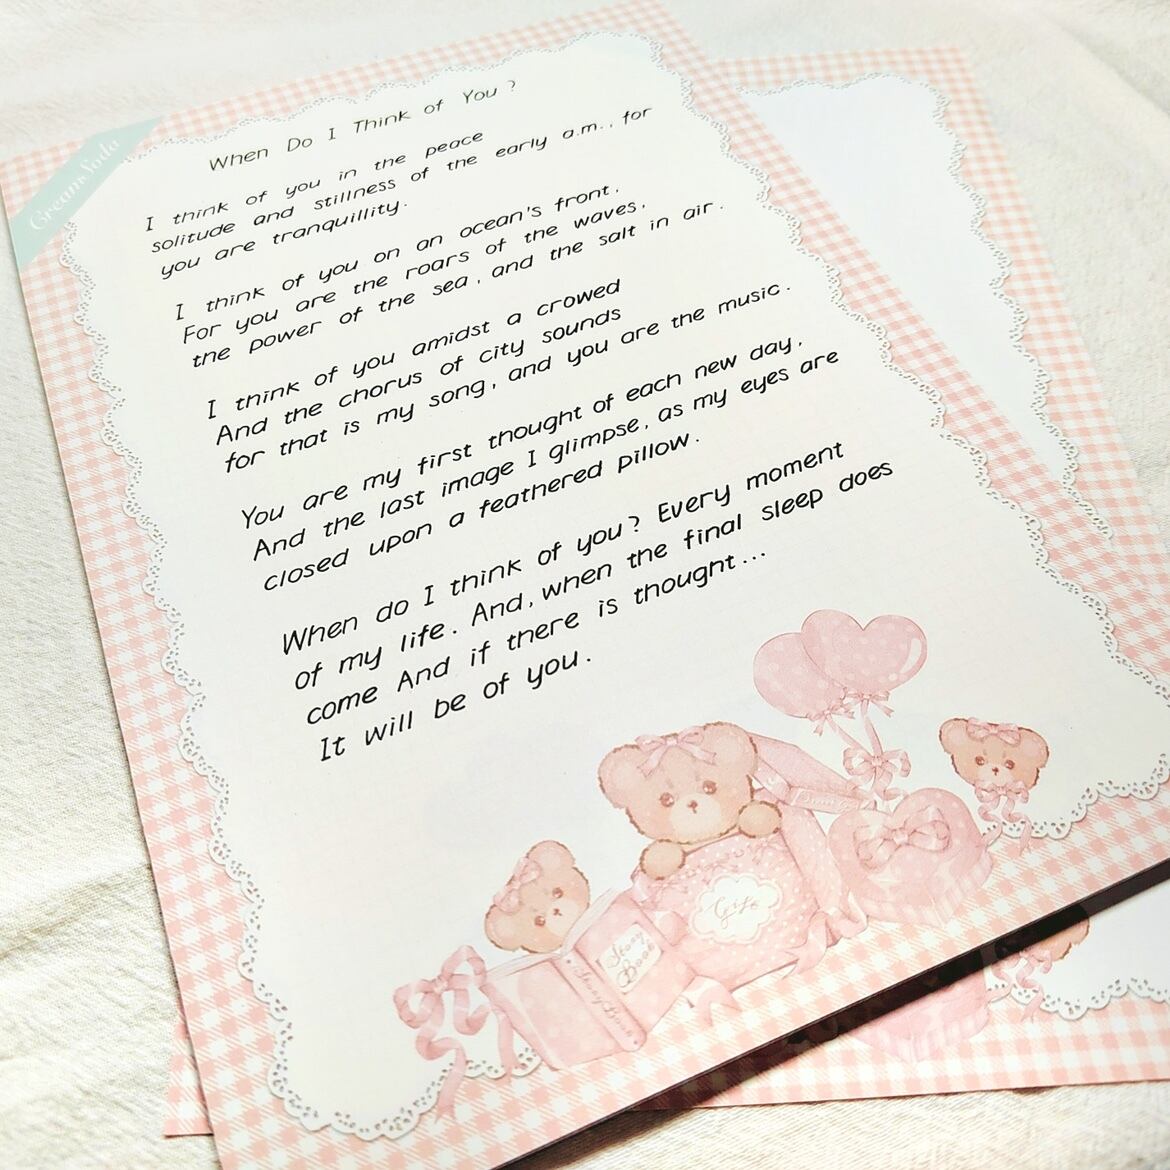 Cream Soda
When Do I Think of You?
I think of you in the peace
solitude and stillness of the early a.m., for
you are tranquillity.
I think of you on an ocean's front,
For you are the roars of the waves,
the power of the sea, and the salt in air.
I think of you amidst a crowed
And the chorus of city sounds
for that is my song, and you are the music.
You are my first thought of each new day,
And the last image I glimpse, as my eyes are
closed upon a feathered pillow.
When do I think of you? Every moment
of my life. And, when the final sleep does
come And if there is thought...
It will be of you.
Gift
Story
Book
Story Book